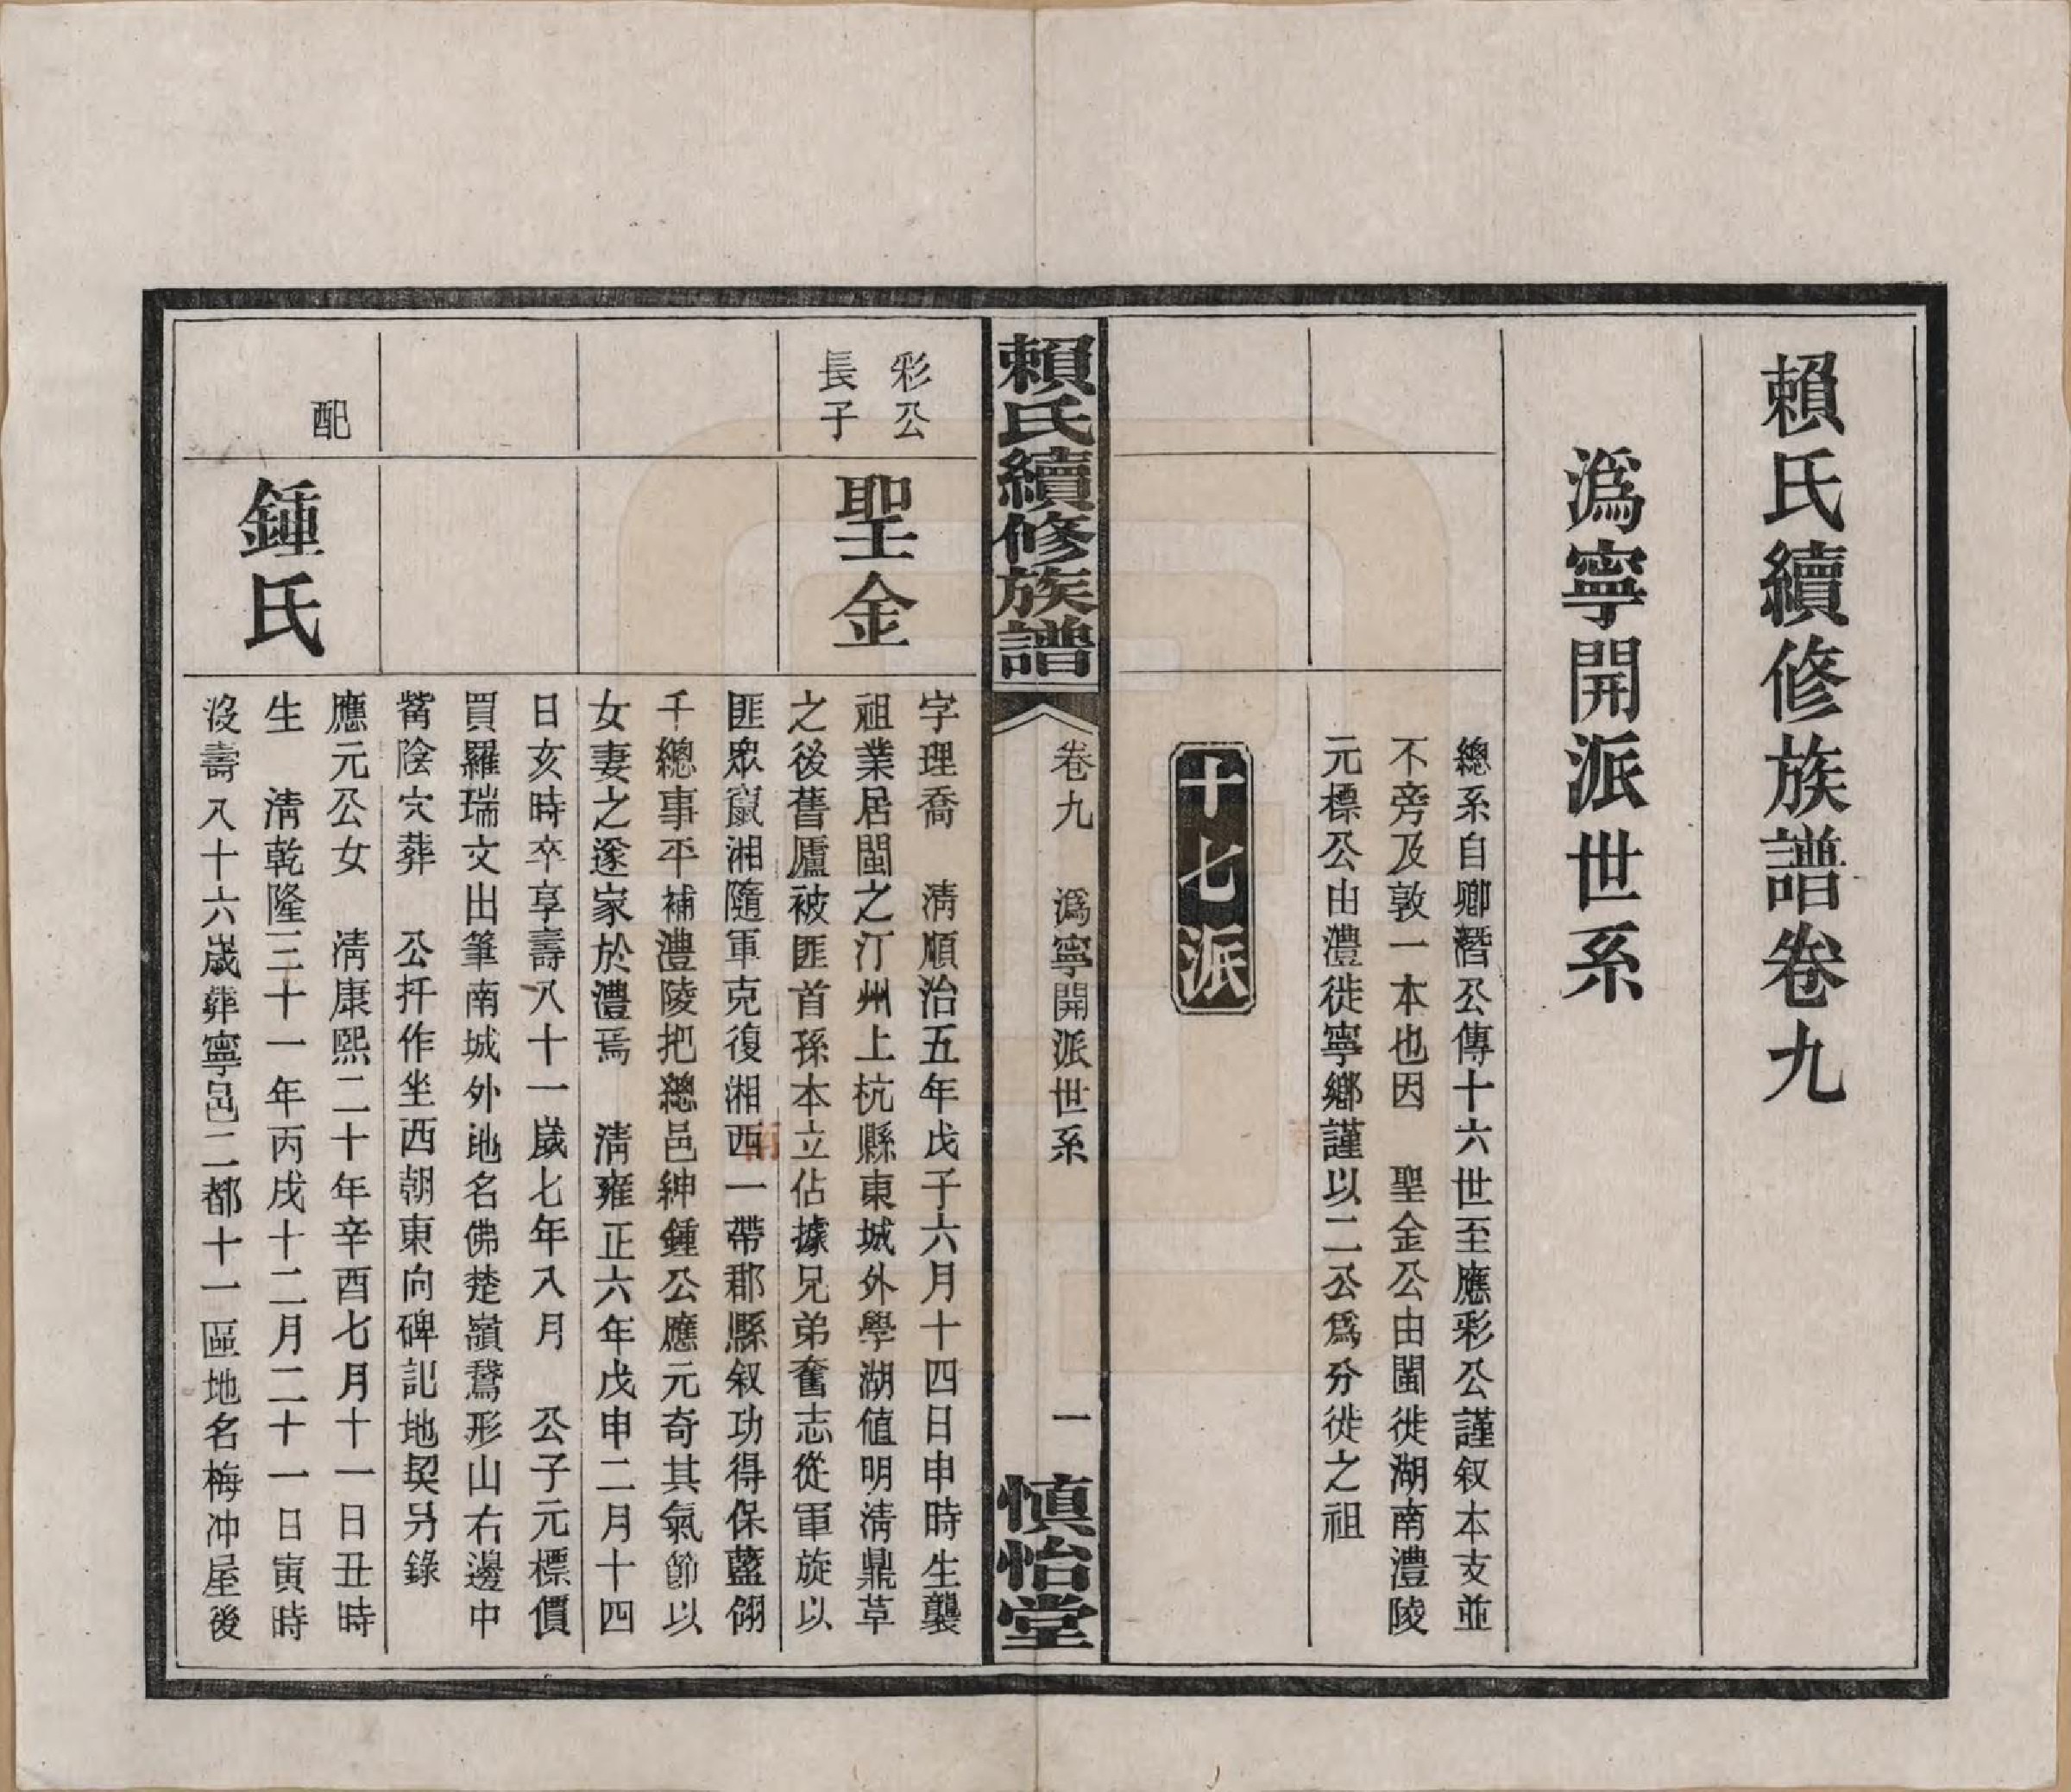 賴氏續修族譜卷九
溈寧開派世系
總系自卿潛公傳十六世至應彩公謹叙本支並
不旁及敦一本也因　聖金公由閩徙湖南澧陵
元標公由澧徙寧鄉謹以二公爲分徙之祖
十七派
賴氏續修族譜
卷九　溈寧開派世系
一
慎怡堂
彩公
長子
聖金
字理喬　淸順治五年戊子六月十四日申時生襲
祖業居閩之汀州上杭縣東城外學湖値明淸鼎革
之後舊廬被匪首孫本立佔據兄弟奮志從軍旋以
匪眾竄湘隨軍克復湘西一帶郡縣叙功得保藍翎
千總事平補澧陵把總邑紳鍾公應元奇其氣節以
女妻之遂家於澧焉　淸雍正六年戊申二月十四
日亥時卒享壽八十一歲七年八月　公子元標價
買羅瑞文出筆南城外地名佛楚嶺鵞形山右邊中
觜陰穴葬　公扦作坐西朝東向碑記地契另錄
配
鍾氏
應元公女　淸康熙二十年辛酉七月十一日丑時
生　淸乾隆三十一年丙戌十二月二十一日寅時
沒壽八十六歲葬寧邑二都十一區地名梅冲屋後